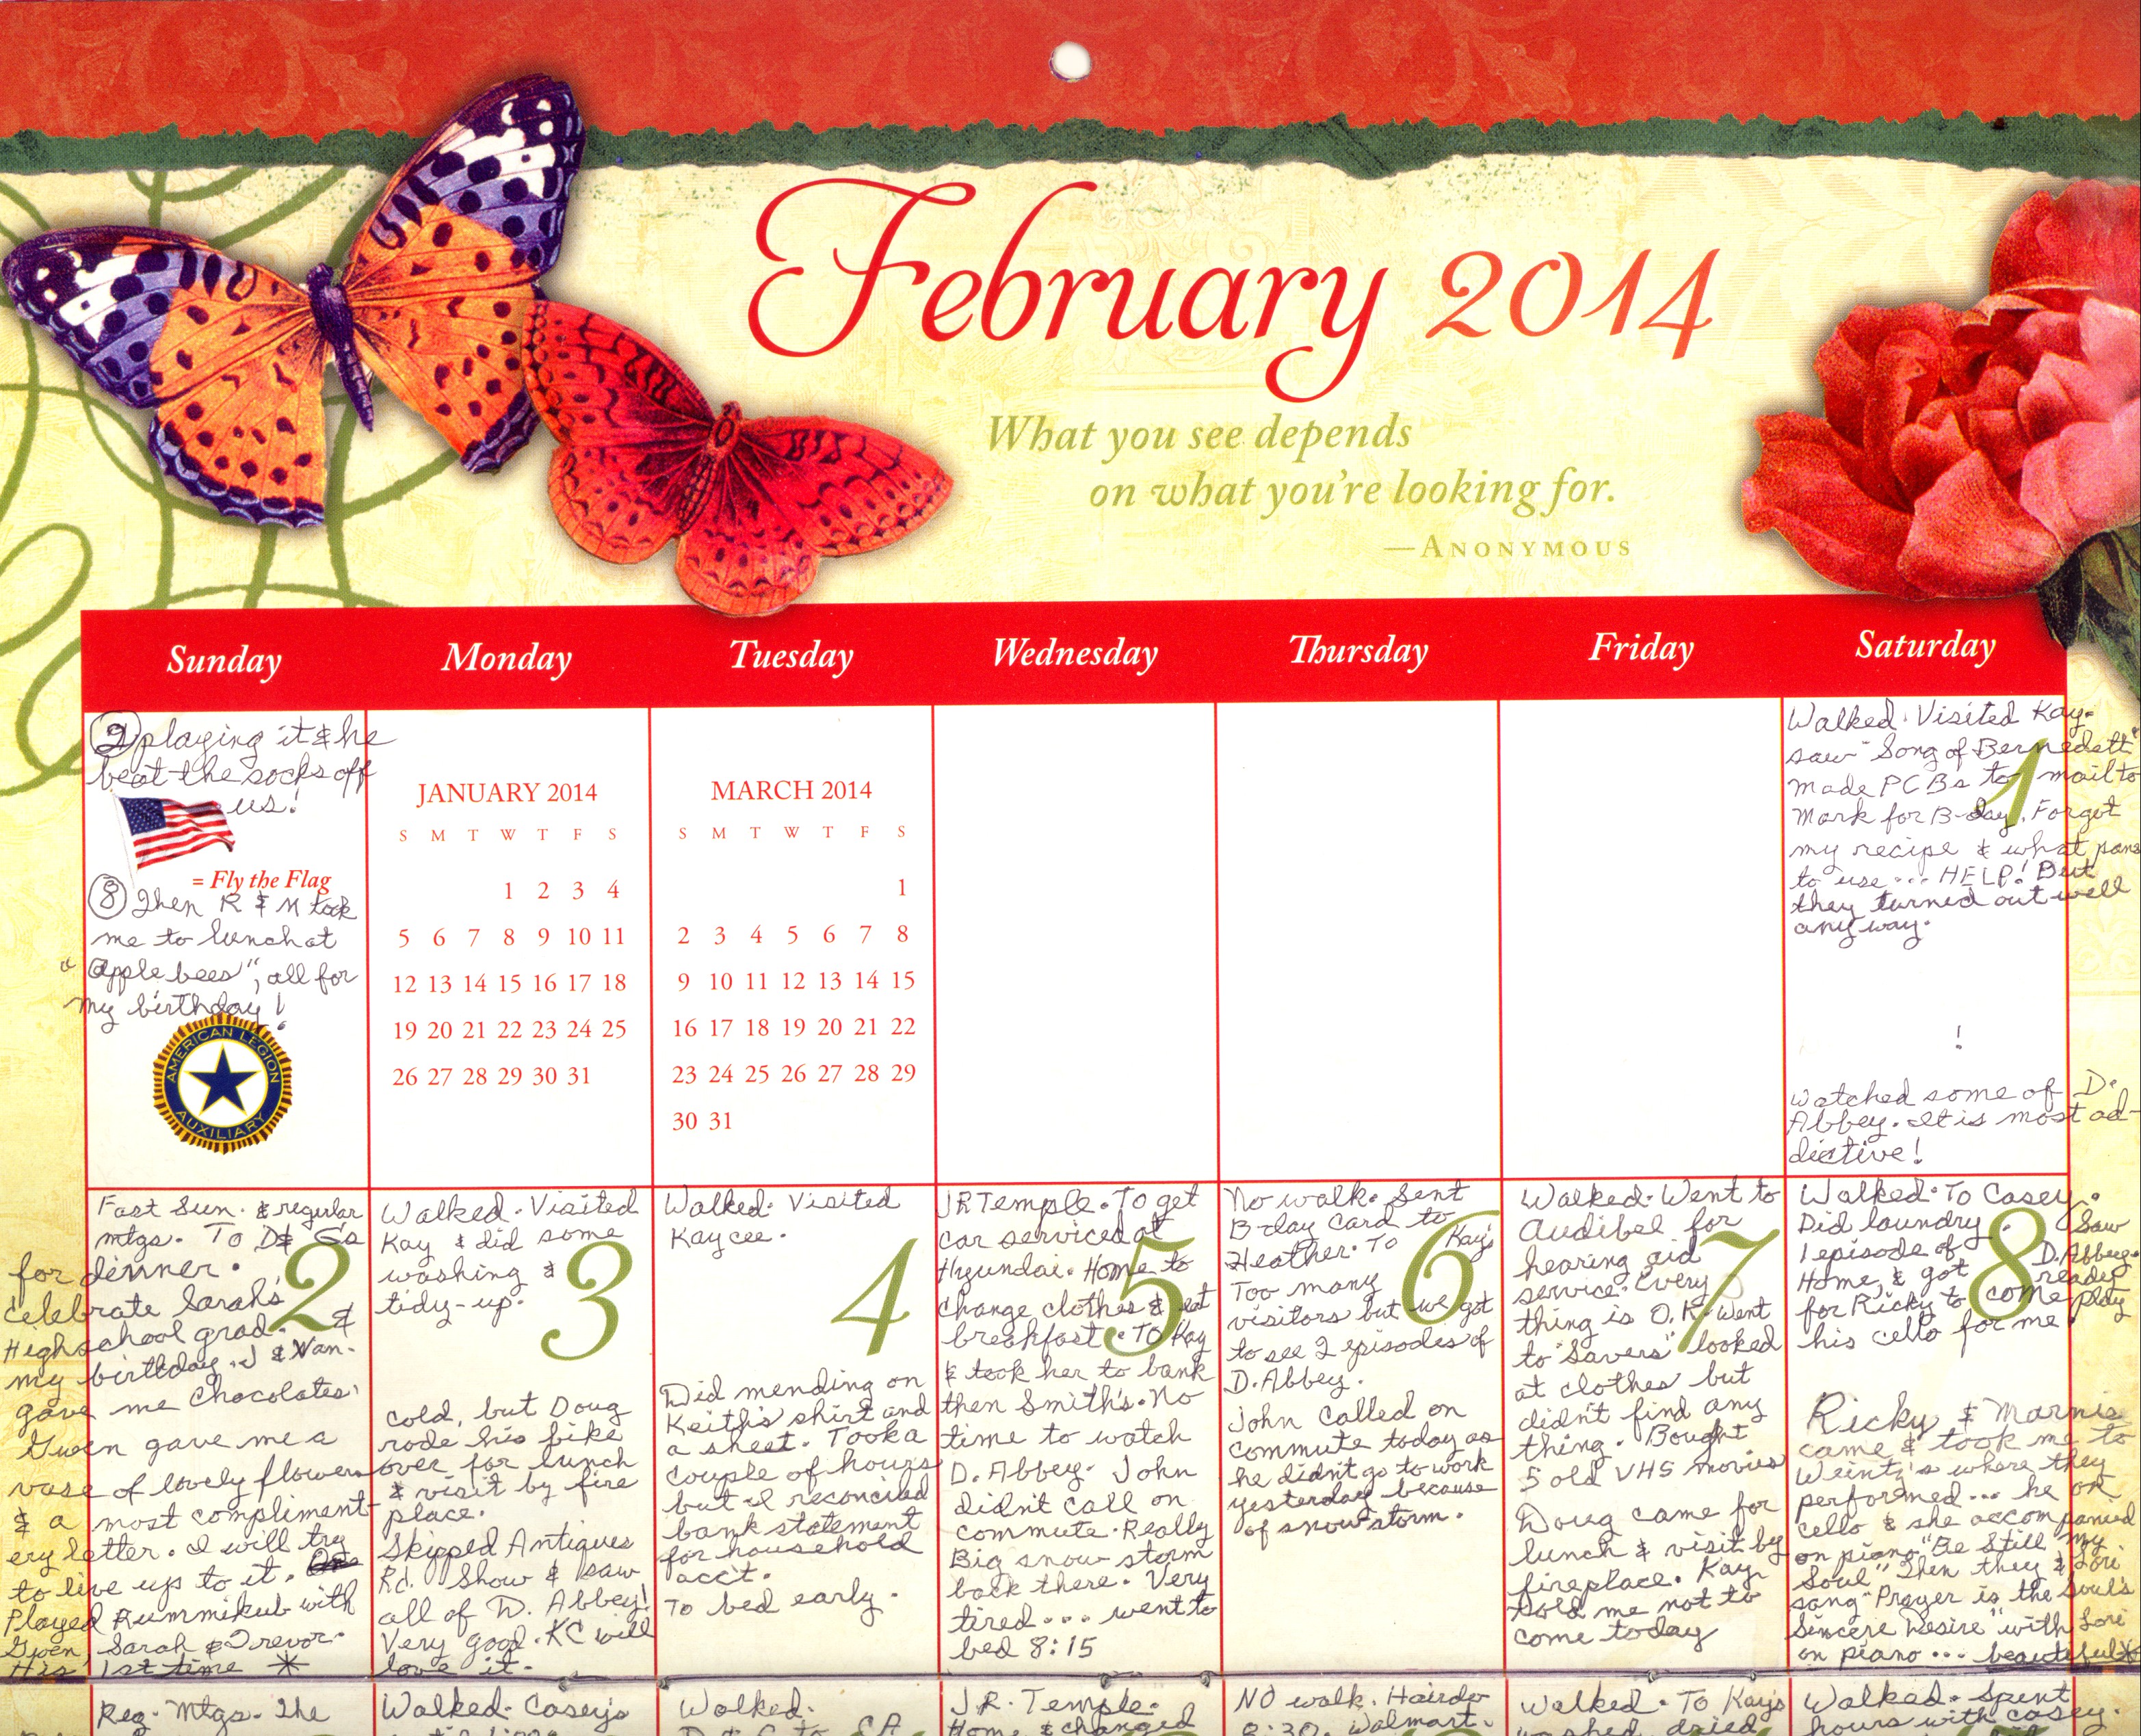 February 2014
What you see depends
on what you're looking for.
—ANONYMOUS
Sunday Monday Tuesday Wednesday Thursday Friday Saturday
② playing it & he
beat the socks off
us!
= Fly the Flag
⑧ Then R & M took
me to lunch at
"Applebees", all for
my birthday!
AMERICAN LEGION
AUXILIARY
JANUARY 2014
S M T W T F S
1 2 3 4
5 6 7 8 9 10 11
12 13 14 15 16 17 18
19 20 21 22 23 24 25
26 27 28 29 30 31
MARCH 2014
S M T W T F S
1
2 3 4 5 6 7 8
9 10 11 12 13 14 15
16 17 18 19 20 21 22
23 24 25 26 27 28 29
30 31
1
Walked. Visited Kay.
saw "Song of Bernedett"
made PCBs to mail to
Mark for B-day. Forgot
my recipe & what pans
to use ... HELP! But
they turned out well
any way.
!
Watched some of D.
Abbey. It is most ad-
dictive!
2
Fast Sun. & regular
mtgs. To D & G's
for dinner.
celebrate Sarah's
Highschool grad. &
my birthday. J & Nan.
gave me chocolates.
Gwen gave me a
vase of lovely flowers
& a most compliment
ery letter. I will try
to live up to it.
Played Rummikub with
Gwen, Sarah & Trevor.
His 1st time *
3
Walked. Visited
Kay & did some
washing &
tidy-up.
cold, but Doug
rode his bike
over for lunch
& visit by fire
place.
Skipped Antiques
Rd. Show & saw
all of D. Abbey!
Very good. KC will
love it.
4
Walked. Visited
Kaycee.
Did mending on
Keith's shirt and
a sheet. Took a
couple of hours
but I reconciled
bank statement
for household
acc't.
To bed early.
5
JR Temple. To get
car serviced at
Hyundai. Home to
change clothes & eat
breakfast. To Kay
& took her to bank
then Smith's. No
time to watch
D. Abbey. John
didn't call on
commute. Really
Big snow storm
back there. Very
tired ... went to
bed 8:15
6
No walk. Sent
B-day card to
Heather. To Kay's
Too many
visitors but we got
to see 2 episodes of
D. Abbey.
John called on
commute today as
he didn't go to work
yesterday because
of snow storm.
7
Walked. Went to
Audibel for
hearing aid
service. Every
thing is O.K. Went
to "Savers" looked
at clothes but
didn't find any
thing. Bought
5 old VHS movies
Doug came for
lunch & visit by
fireplace. Kay
told me not to
come today
8
Walked. To Casey.
Did laundry. (Saw
1 episode of D. Abbey.
Home, & got ready
for Ricky to come play
his cello for me.
Ricky & Marnie
came & took me to
Weintz's where they
performed ... he on
cello & she accompanied
on piano "Be Still my
Soul" Then they & Lori
sang "Prayer is the Soul's
Sincere Desire" with Lori
on piano ... beautiful *
Reg. Mtgs. The
Walked. Casey's
Walked.
J.R. Temple.
Home & changed
NO walk. Hairdo
8:30. Walmart.
Walked. To Kay's
Walked. Spent
hours with Casey.